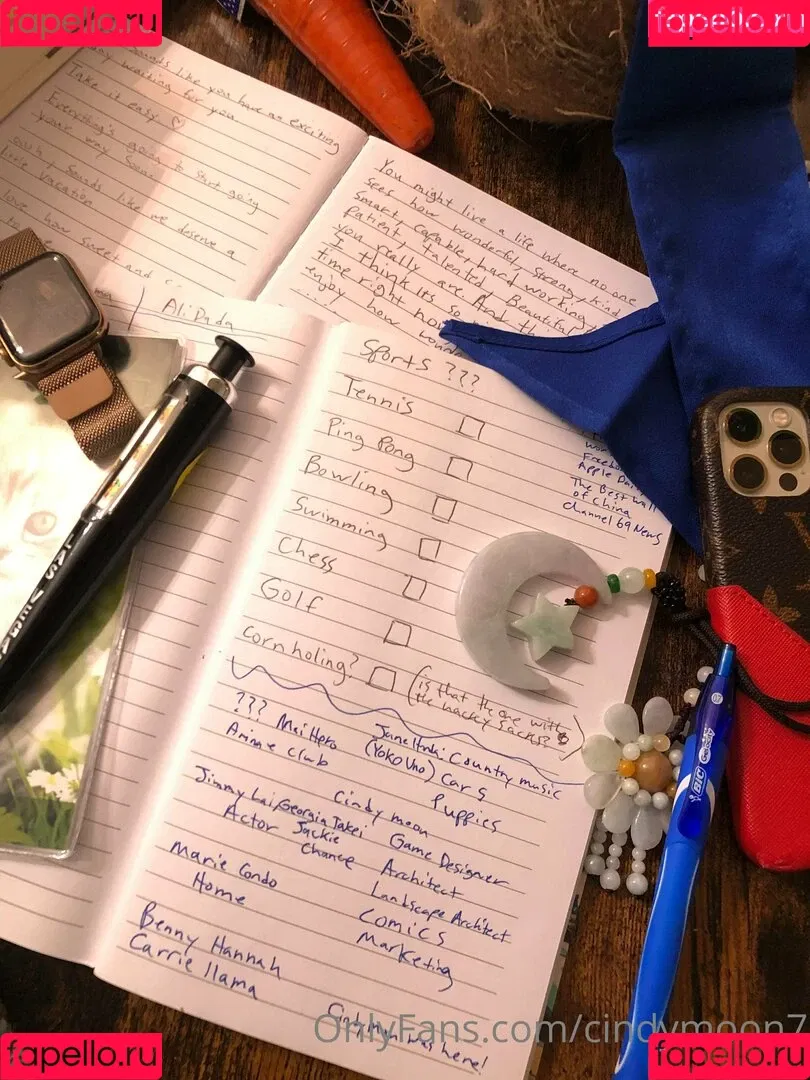 fapello.ru
fapello.ru
sounds like you have an exciting
day waiting for you
Take it easy. ♡
Everything's going to start going
your way soon
oohh, sounds like we deserve a
little vacation
love how sweet and
Ali Dada
You might live a life where no one
sees how wonderful, strong, kind
smart, capable, hard working,
patient, talented, Beautiful
you really are. And th
I think its so
time right no
enjoy how
Sports ???
Tennis □
Ping Pong □
Bowling □
Swimming □
Chess □
Golf □
cornholing? □ (is that the one with
the hacky sacks?)
Apple Dai
The Best wall
of China
channel 69 News
??? Mei Hero
Anime club
(Yoko Uno)
Country music
Cars
Puppies
Cindy moon
Jimmy Lai, Georgia Takei
Actor Jackie
Chance
Game Designer
Architect
Landscape Architect
Marie Condo
Home
Comics
Marketing
Benny Hannah
Carrie llama
was here!
BIC
OnlyFans.com/cindymoon7
fapello.ru
fapello.ru